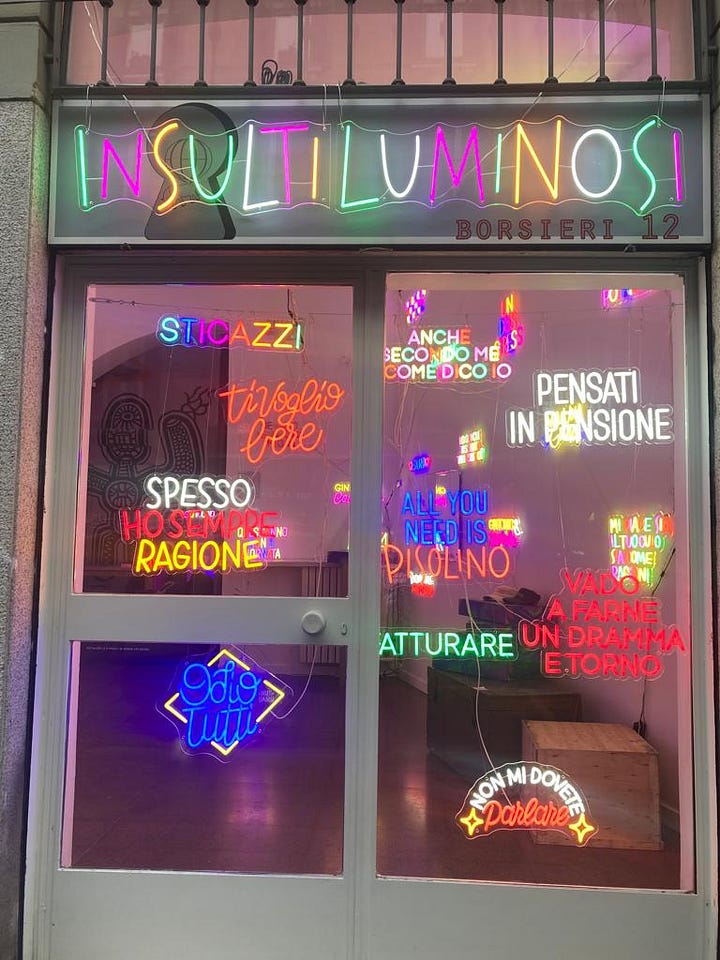 INSULTI LUMINOSI
BORSIERI 12
STICAZZI
ti voglio
bere
SPESSO
HO SEMPRE
RAGIONE
Odio
tutti
ANCHE
SECONDO ME
COME DICO IO
PENSATI
IN PENSIONE
ALL YOU
NEED IS
PISOLINO
FATTURARE
VADO
A FARNE
UN DRAMMA
E TORNO
NON MI DOVETE
parlare